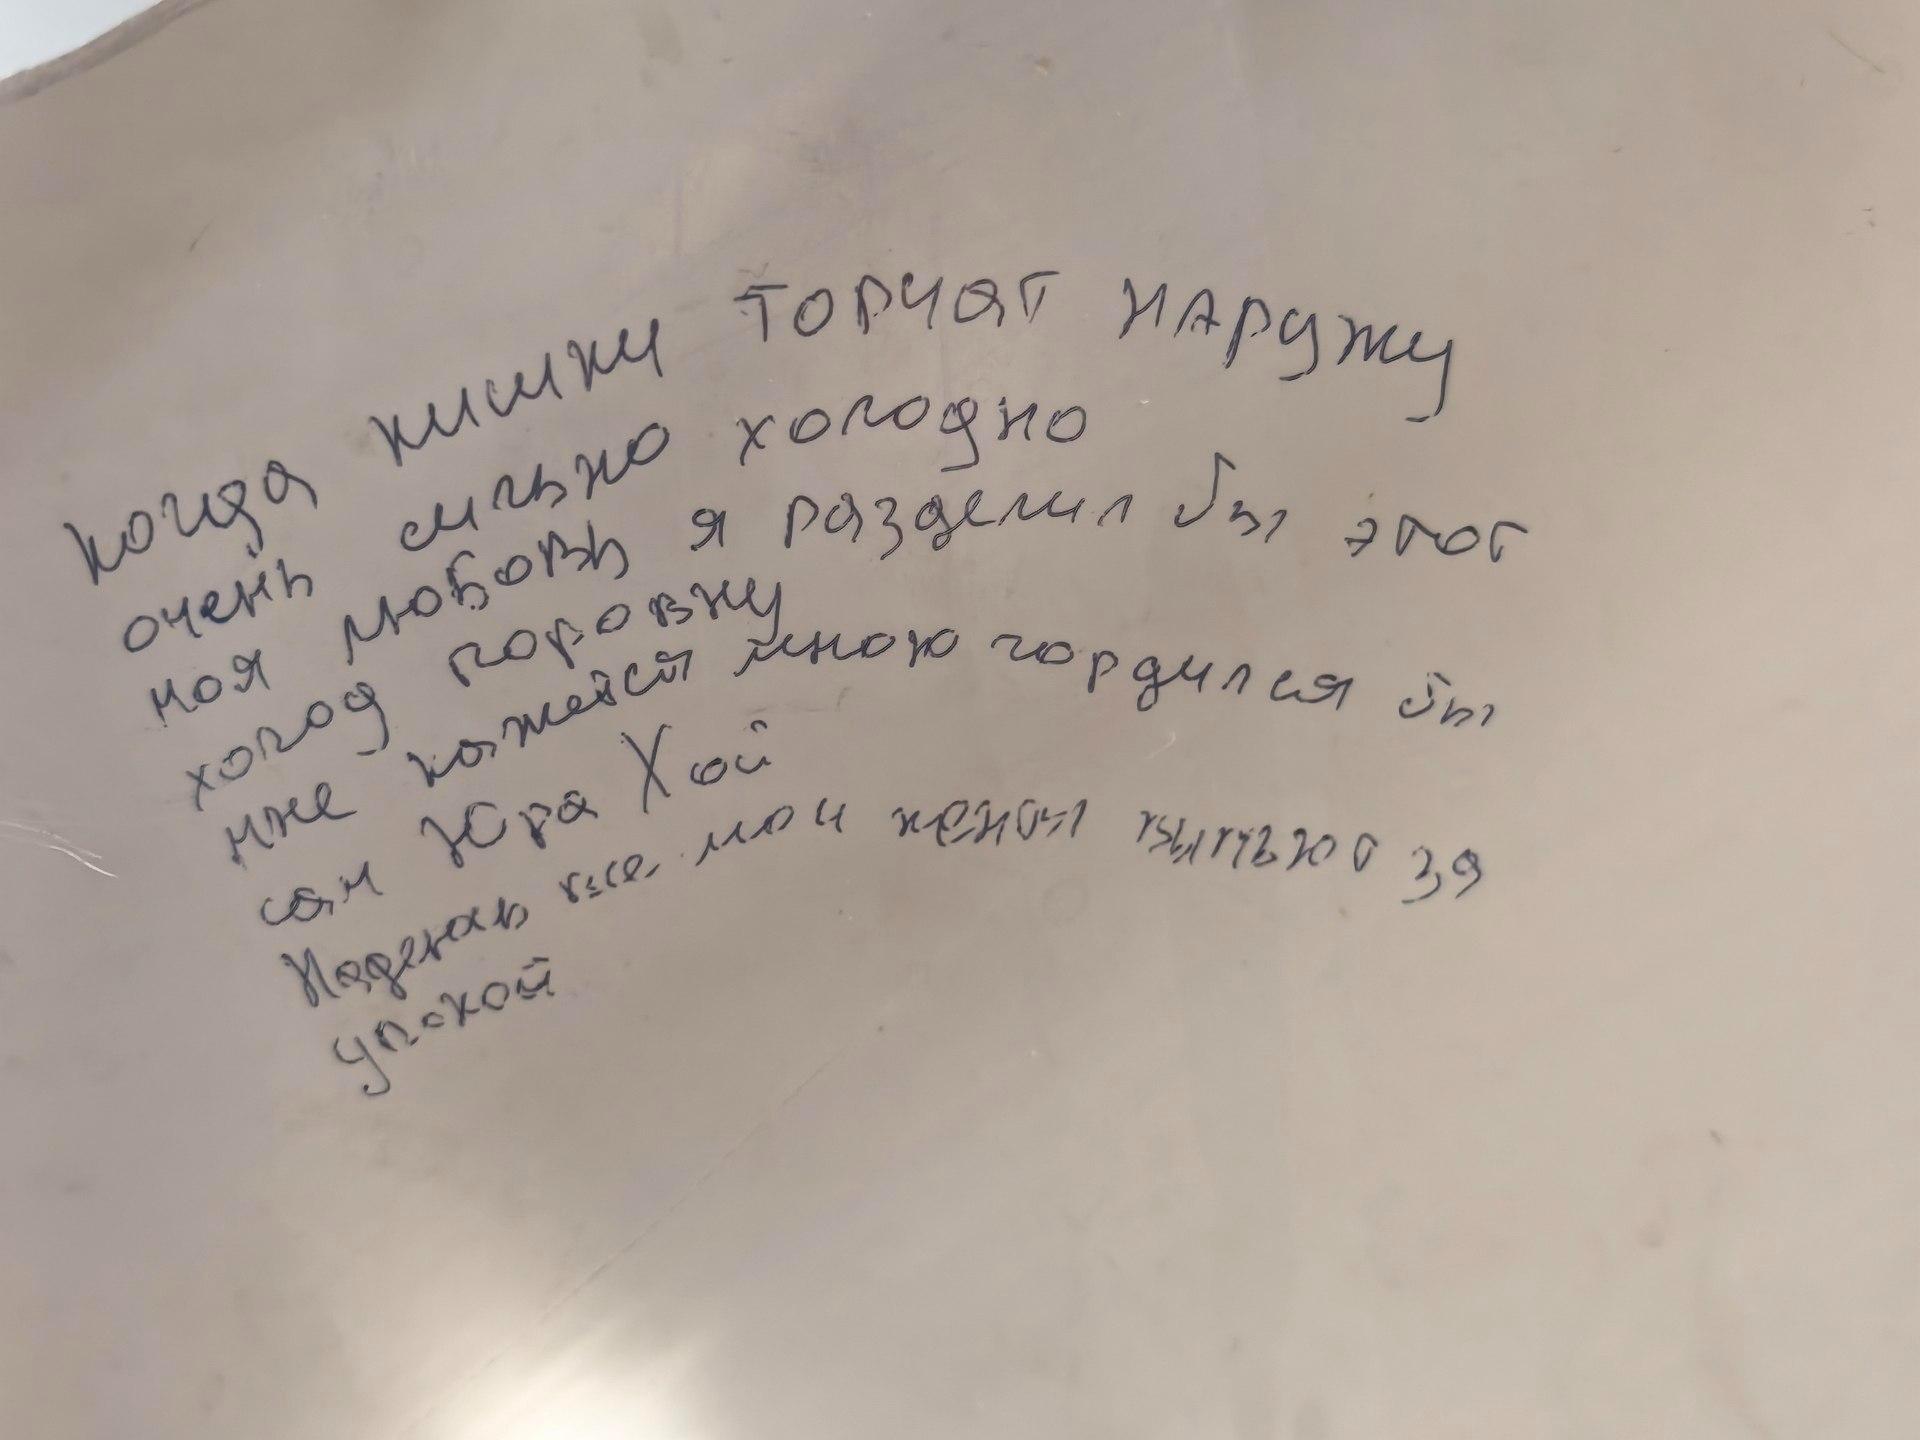 Когда кишки торчат наружу
очень сильно холодно
моя любовь я разделил бы этот
холод поровну
мне кажется мною гордился бы
сам Юра Хой
Надеюсь все мои жены выпьют за
упокой